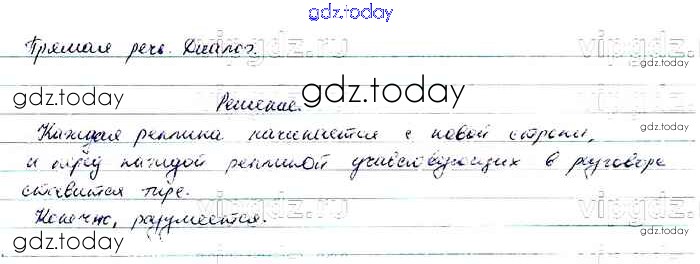 gdz.today
Прямая речь. Диалог.
vipgdz.ru
gdz.today
Решение.
gdz.today
Каждая реплика начинается с новой строки,
и перед каждой репликой участвующих в разговоре
gdz.today
ставится тире.
vipgdz.ru
Конечно, разумеется.
gdz.today
gdz.today